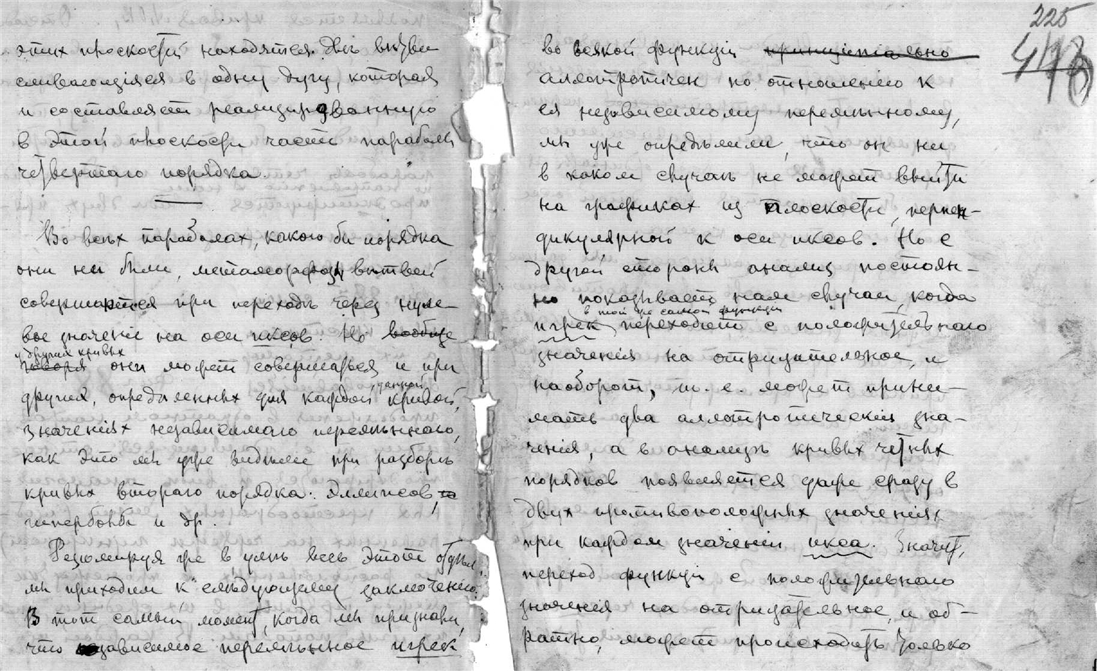 этих плоскостей находятся две ветви
сливающіяся в одну дугу, которая
и составляет реализированную
в этой плоскости часть параболы
четвертаго порядка.
Во всѣх параболах, какого бы порядка
они ни были, метаморфозы вѣтвей
совершаются при переходѣ через нуле-
вое значеніе на оси иксов. Но вообще
у других кривых
говоря они могут совершаться и при
других, опредѣленных для каждой данной кривой,
значеніях независимаго перемѣннаго,
как это мы уже видѣли при разборѣ
кривых втораго порядка: эллипсов,
гиперболы и др.
Резюмируя же в умѣ весь этот отдѣл,
мы приходим к слѣдующему заключенію.
В тот самый момент, когда мы признали,
что зависимое перемѣнное игрек
225
во всякой функціи принципіально
аллотропичен по отношенію к
ея независимому перемѣнному,
мы уже опредѣлили, что он ни
в каком случаѣ не может выйти
на графиках из плоскости, перпен-
дикулярной к оси иксов. Но с
другой стороны анализ постоян-
но показывает нам случаи, когда
в той же самой функціи
игрек переходит с положительнаго
значенія на отрицательное, и
наоборот, т. е. может прини-
мать два аллотропическія зна-
ченія, а в анализѣ кривых четных
порядков появляется даже сразу в
двух противоположных значеніях
при каждом значеніи икса. Значит,
переход функціи с положительнаго
значенія на отрицательное, и об-
ратно, может происходить только